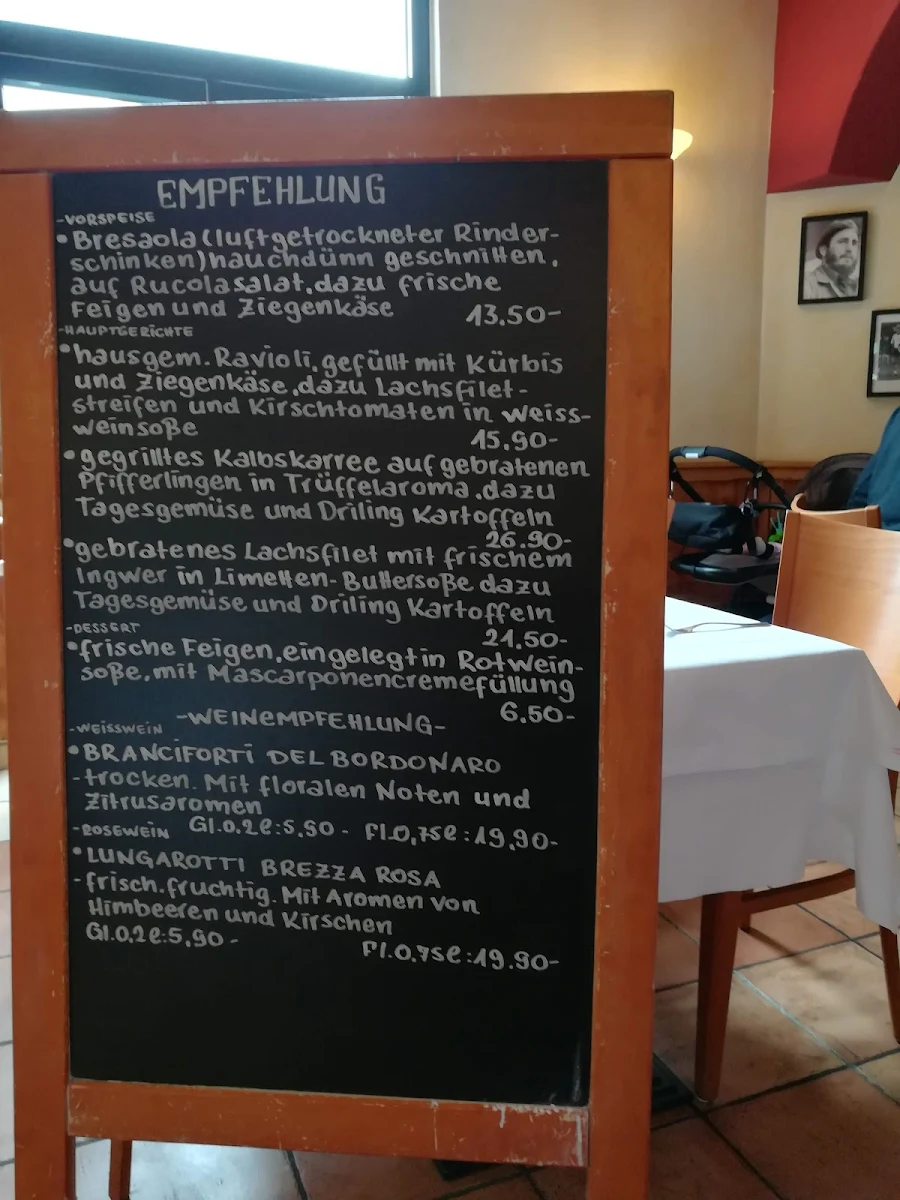 EMPFEHLUNG
-VORSPEISE
• Bresaola (luftgetrockneter Rinder-
schinken) hauchdünn geschnitten,
auf Rucolasalat, dazu frische
Feigen und Ziegenkäse 13,50-
-HAUPTGERICHTE
• hausgem. Ravioli, gefüllt mit Kürbis
und Ziegenkäse, dazu Lachsfilet-
streifen und Kirschtomaten in Weiss-
weinsoße 15,90-
• gegrilltes Kalbskarree auf gebratenen
Pfifferlingen in Trüffelaroma, dazu
Tagesgemüse und Driling Kartoffeln
26,90-
• gebratenes Lachsfilet mit frischem
Ingwer in Limetten-Buttersoße dazu
Tagesgemüse und Driling Kartoffeln
21,50-
-DESSERT
• frische Feigen, eingelegt in Rotwein-
soße, mit Mascarponencremefüllung
6,50-
-WEINEMPFEHLUNG-
-WEISSWEIN
• BRANCIFORTI DEL BORDONARO
- trocken. Mit floralen Noten und
Zitrusaromen
Gl.0.2l:5,90- Fl.0,75l:19,90-
-ROSEWEIN
• LUNGAROTTI BREZZA ROSA
- frisch, fruchtig. Mit Aromen von
Himbeeren und Kirschen
Gl.0,2l:5,90- Fl.0,75l:19.90-